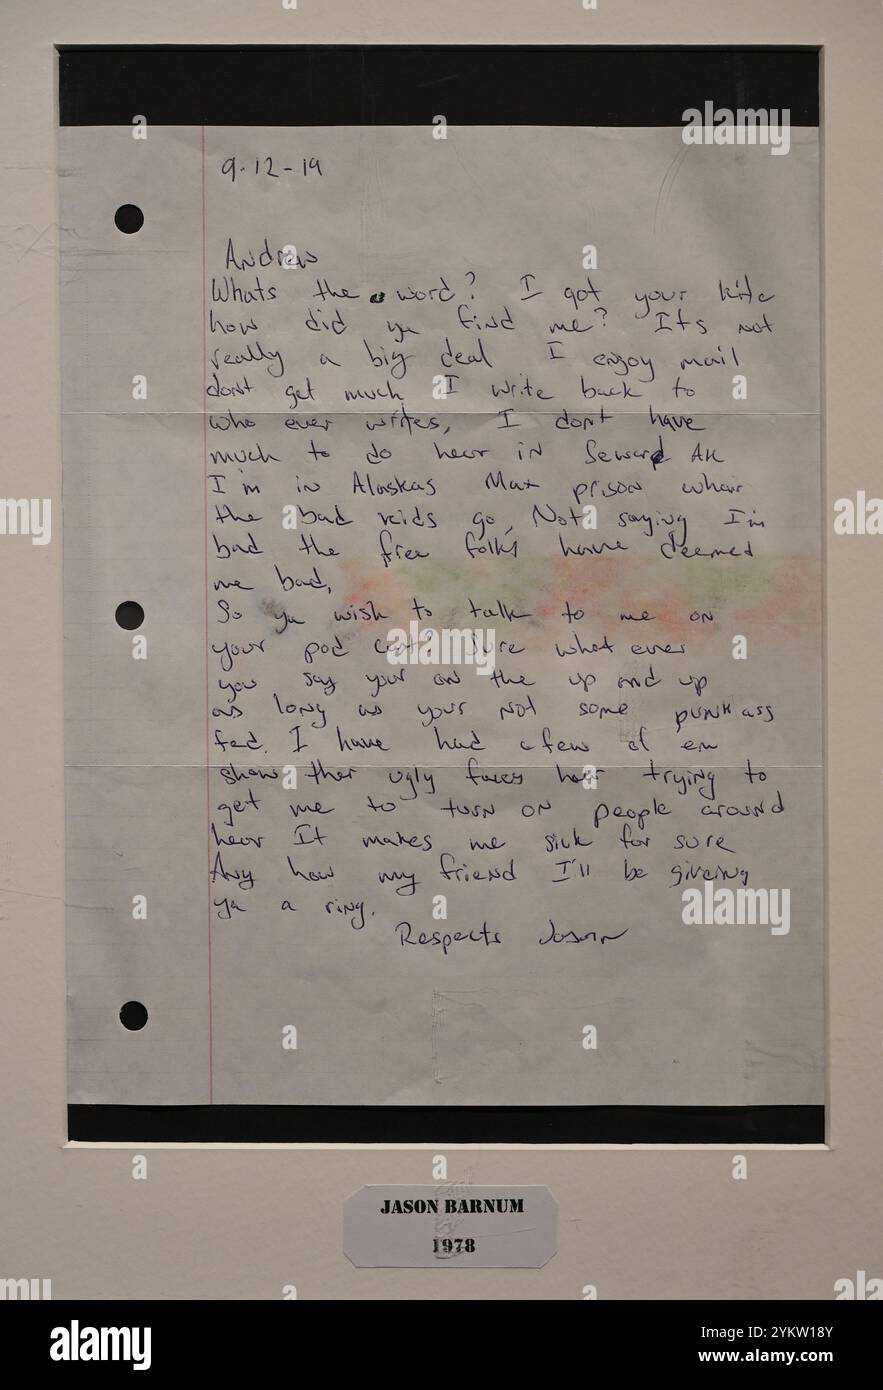 9-12-19
Andrew
Whats the word? I got your kite
how did ya find me? Its not
really a big deal I enjoy mail
dont get much I write back to
who ever writes, I dont have
much to do hear in Seward AK
I'm in Alaskas Max prison whair
the bad kids go, Not saying I'm
bad the free folks have deemed
me bad,
So ya wish to talk to me on
your pod cast? Sure what ever
you say your on the up and up
as long as your not some punk ass
fed. I have had a few of em
show ther ugly faces hear trying to
get me to turn on people around
hear It makes me sick for sure
Any how my friend I'll be giveing
ya a ring.
Respects Jason
JASON BARNUM
1978
alamy
alamy
alamy
Image ID: 2YKW18Y
www.alamy.com